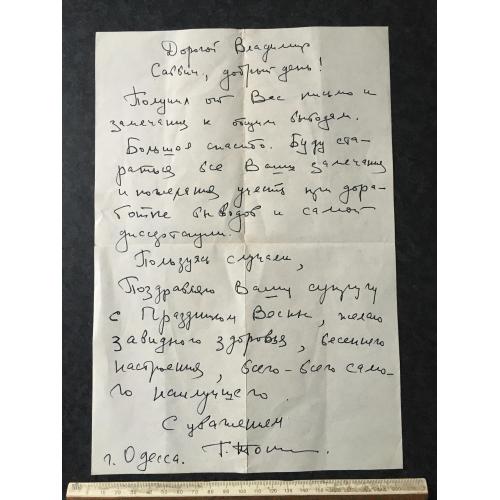 Дорогой Владимир
Саввич, добрый день!
Получил от Вас письмо и
замечания к общим выводам.
Большое спасибо. Буду ста-
раться все Ваши замечания
и пожелания учесть при дора-
ботке выводов и самой
диссертации.
Пользуясь случаем,
Поздравляю Вашу супругу
с Праздником Весны, желаю
завидного здоровья, весеннего
настроения, всего-всего само-
го наилучшего.
С уважением
г. Одесса.